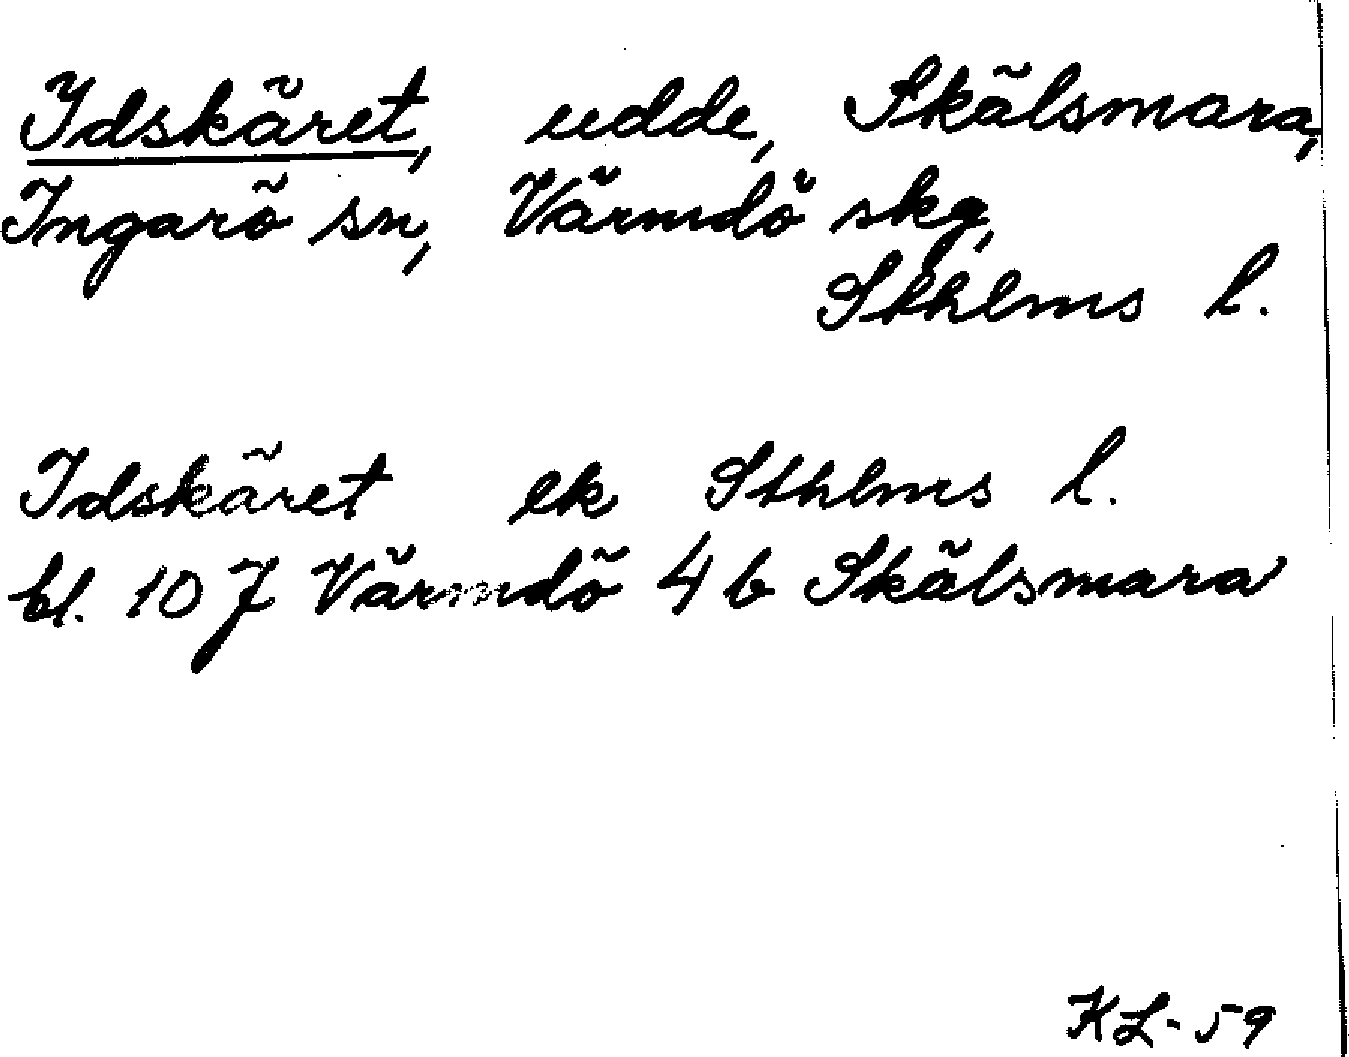 Idskäret, udde, Skälsmara,
Ingarö sn, Värmdö skg,
Sthlms l.
Idskäret ek Sthlms l.
bl. 107 Värmdö 4 b Skälsmara
KL-59